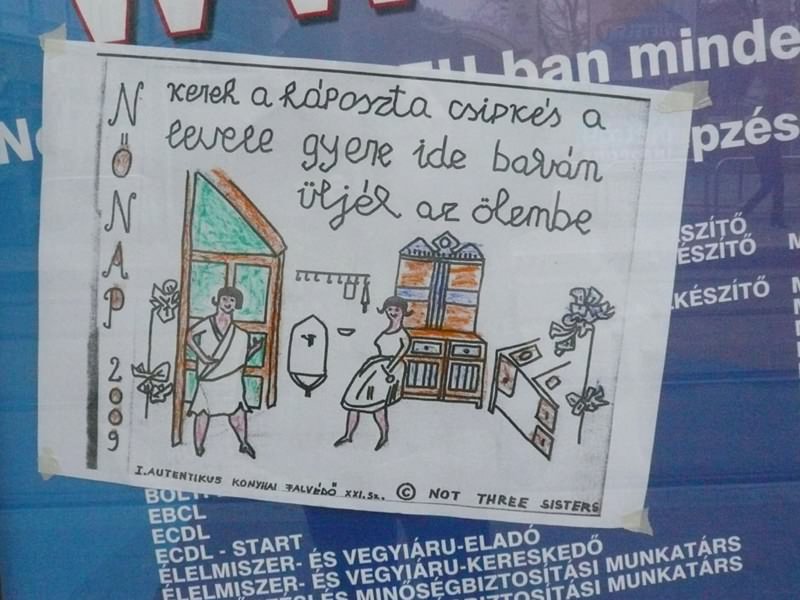 ban minde
pzés
NŐNAP 2009
kerek a káposzta csipkés a
levele gyere ide babám
üljél az ölembe
SZÍTŐ
ÉSZÍTŐ
KÉSZÍTŐ
I. AUTENTIKUS KONYHAI FALVÉDŐ XXI.SZ. © NOT THREE SISTERS
EBCL
ECDL
ECDL - START
ÉLELMISZER- ÉS VEGYIÁRU-ELADÓ
ÉLELMISZER- ÉS VEGYIÁRU-KERESKEDŐ
MINŐSÉGBIZTOSÍTÁSI MUNKATÁRS
MUNKATÁRS